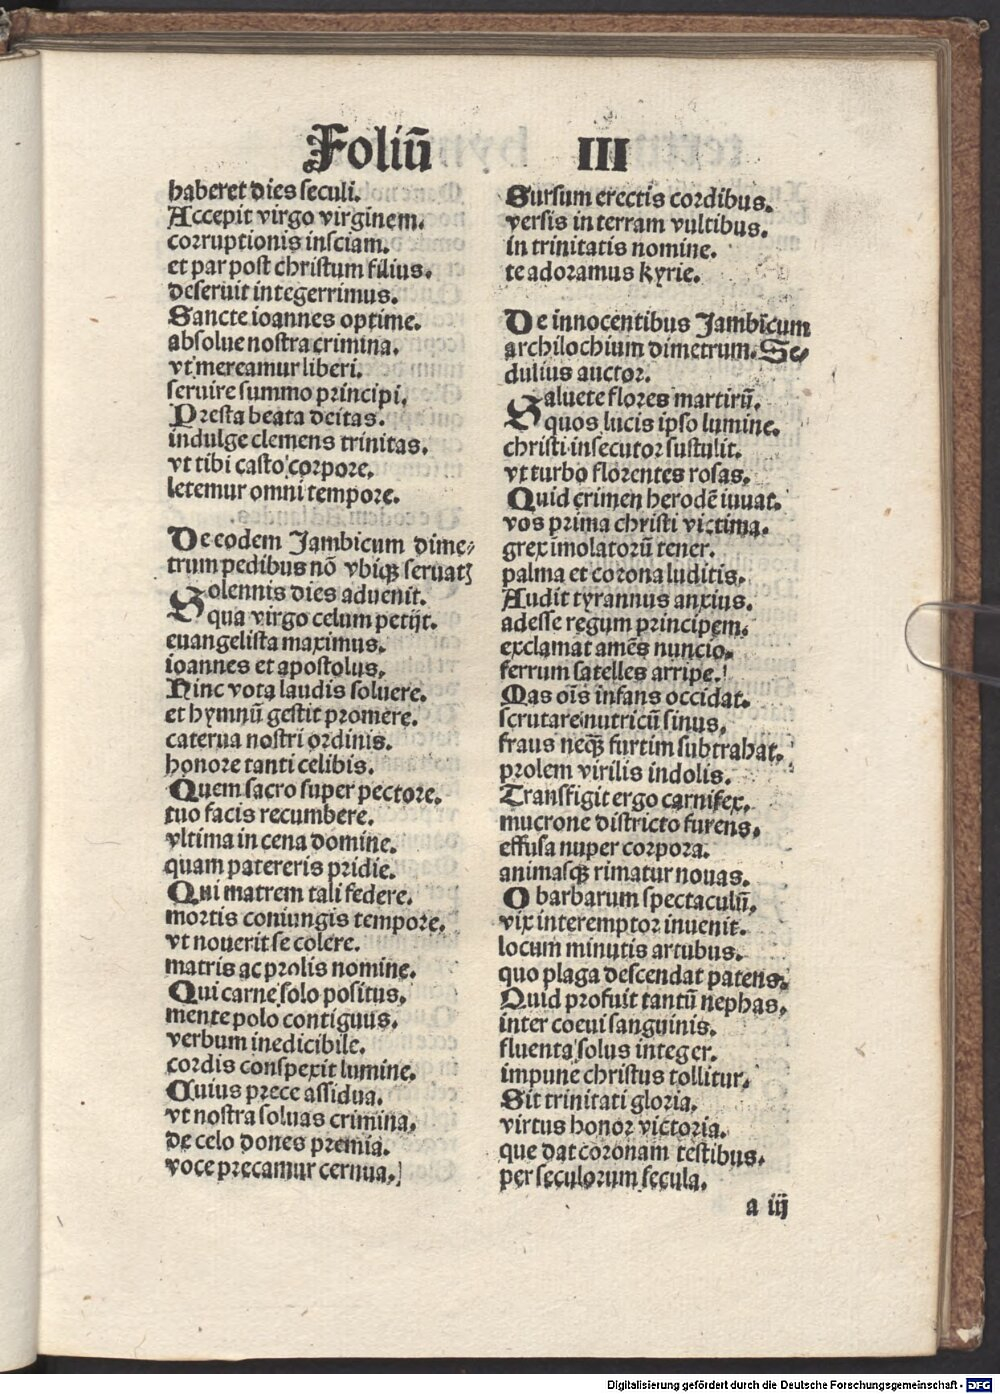 Foliū III
haberet dies seculi.
Accepit virgo virginem.
corruptionis insciam.
et par post christum filius.
deseruit integerrimus.
Sancte ioannes optime.
absolue nostra crimina.
vt mereamur liberi.
seruire summo principi.
Presta beata deitas.
indulge clemens trinitas.
vt tibi casto corpore.
letemur omni tempore.
De eodem Jambicum dime⸗
trum pedibus nō vbiqꝫ seruatꝫ
Solennis dies aduenit.
qua virgo celum petijt.
euangelista maximus.
ioannes et apostolus.
Hinc vota laudis soluere.
et hymnū gestit promere.
caterua nostri ordinis.
honore tanti celibis.
Quem sacro super pectore.
tuo facis recumbere.
vltima in cena domine.
quam patereris pridie.
Qui matrem tali federe.
mortis coniungis tempore.
vt nouerit se colere.
matris ac prolis nomine.
Qui carne solo positus.
mente polo contiguus.
verbum inedicibile.
cordis conspexit lumine.
Cuius prece assidua.
vt nostra soluas crimina.
de celo dones premia.
voce precamur cernua.
Sursum erectis cordibus.
versis in terram vultibus.
in trinitatis nomine.
te adoramus kyrie.
De innocentibus Jambicum
archilochium dimetrum. Se⸗
dulius auctor.
Saluete flores martirū.
quos lucis ipso lumine.
christi insecutor sustulit.
vt turbo florentes rosas.
Quid crimen herodē iuuat.
vos prima christi victima.
grex īmolatorū tener.
palma et corona luditis.
Audit tyrannus anxius.
adesse regum principem.
exclamat amēs nuncio.
ferrum satelles arripe.
Mas oīs infans occidat.
scrutare nutricū sinus.
fraus neqꝫ furtim subtrahat.
prolem virilis indolis.
Transfigit ergo carnifex.
mucrone districto furens.
effusa nuper corpora.
animasqꝫ rimatur nouas.
O barbarum spectaculū.
vix interemptor inuenit.
locum minutis artubus.
quo plaga descendat patens.
Quid profuit tantū nephas.
inter coeui sanguinis.
fluenta solus integer.
impune christus tollitur.
Sit trinitati gloria.
virtus honor victoria.
que dat coronam testibus.
per seculorum secula.
a iij
Digitalisierung gefördert durch die Deutsche Forschungsgemeinschaft - DFG